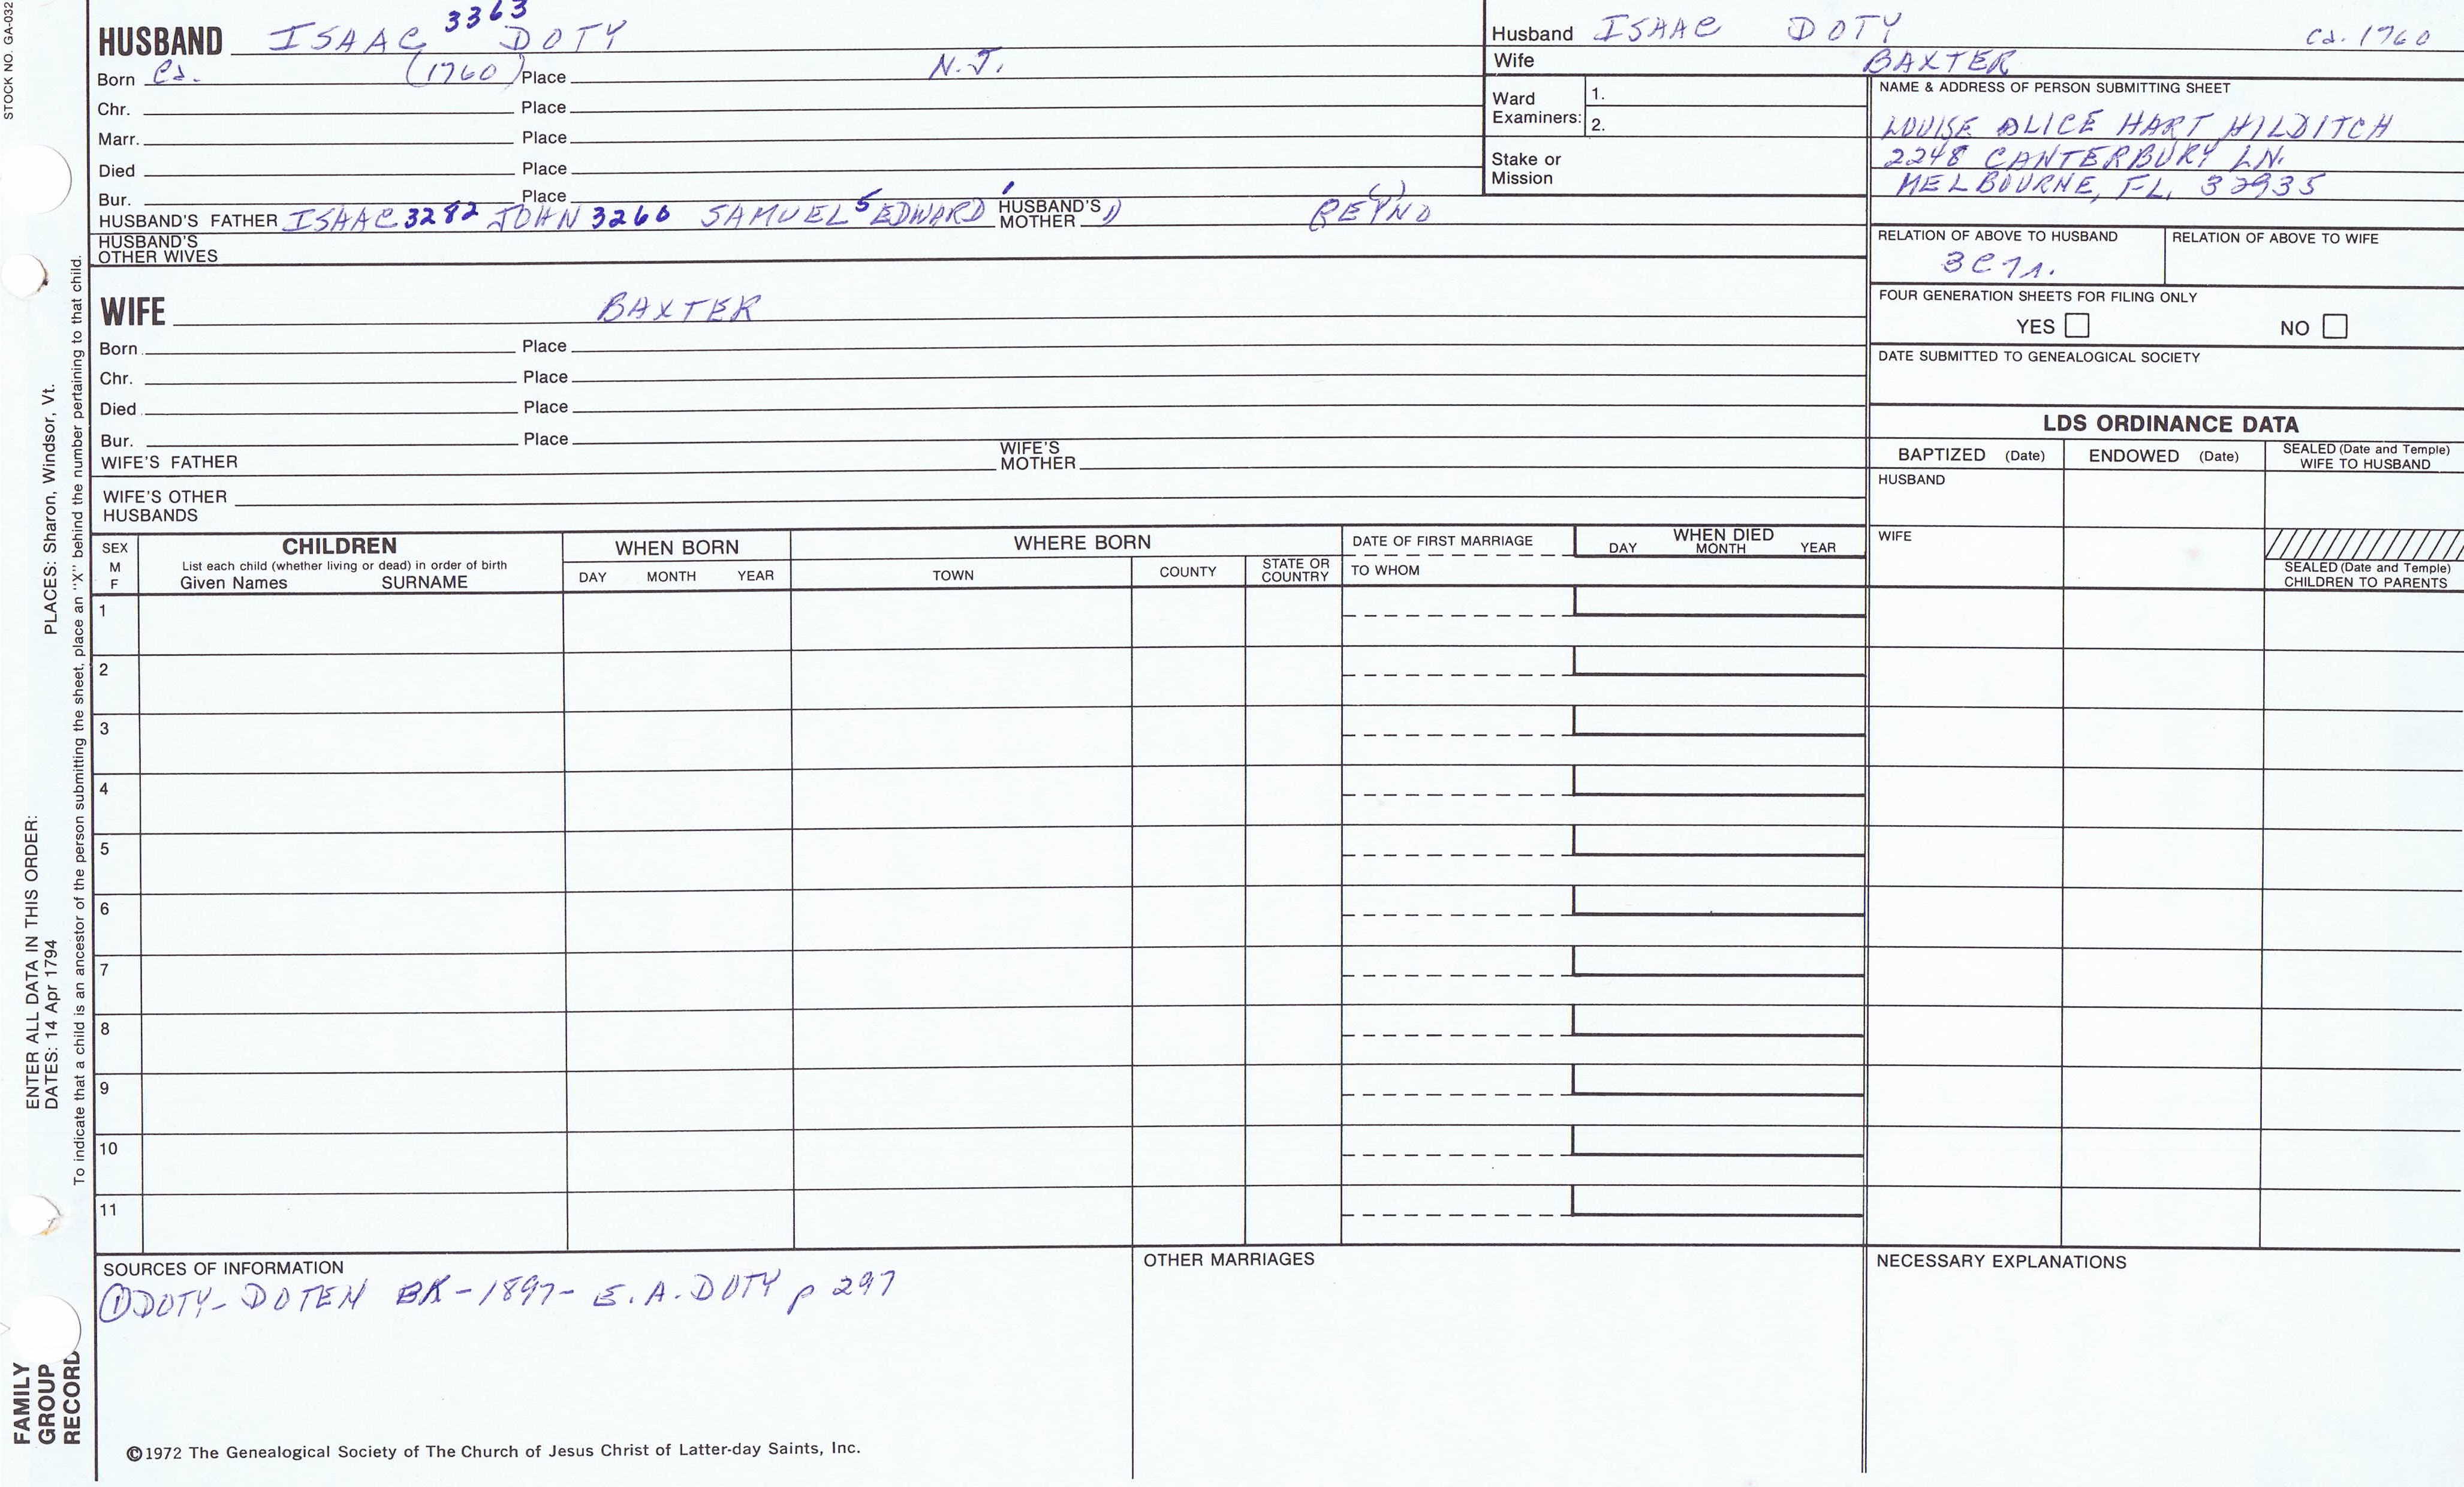 STOCK NO. GA-032
3363
HUSBAND ISAAC DOTY
Born Ca. (1760) Place N.J.
Chr. Place
Marr. Place
Died Place
Bur. Place
HUSBAND'S FATHER ISAAC 3282 JOHN 3260 SAMUEL 5 EDWARD 1 HUSBAND'S MOTHER 1) ( )
HUSBAND'S OTHER WIVES
WIFE BAXTER
Born Place
Chr. Place
Died Place
Bur. Place
WIFE'S FATHER WIFE'S MOTHER
WIFE'S OTHER HUSBANDS
Husband ISAAC DOTY Ca. 1760
Wife BAXTER
Ward Examiners: 1.
2.
Stake or Mission
NAME & ADDRESS OF PERSON SUBMITTING SHEET
LOUISE ALICE HART HILDITCH
2248 CANTERBURY LN.
MELBOURNE, FL, 32935
RELATION OF ABOVE TO HUSBAND RELATION OF ABOVE TO WIFE
FOUR GENERATION SHEETS FOR FILING ONLY
YES NO
DATE SUBMITTED TO GENEALOGICAL SOCIETY
LDS ORDINANCE DATA
BAPTIZED (Date) ENDOWED (Date) SEALED (Date and Temple) WIFE TO HUSBAND
HUSBAND
WIFE
SEALED (Date and Temple)
CHILDREN TO PARENTS
SEX M F
CHILDREN
List each child (whether living or dead) in order of birth
Given Names SURNAME
WHEN BORN
DAY MONTH YEAR
WHERE BORN
TOWN COUNTY STATE OR COUNTRY
DATE OF FIRST MARRIAGE
TO WHOM
WHEN DIED
DAY MONTH YEAR
1
2
3
4
5
6
7
8
9
10
11
SOURCES OF INFORMATION
① DOTY-DOTEN BK-1897- E.A. DOTY p 297
OTHER MARRIAGES
NECESSARY EXPLANATIONS
©1972 The Genealogical Society of The Church of Jesus Christ of Latter-day Saints, Inc.
ENTER ALL DATA IN THIS ORDER:
DATES: 14 Apr 1794
PLACES: Sharon, Windsor, Vt.
To indicate that a child is an ancestor of the person submitting the sheet, place an "X" behind the number pertaining to that child.
FAMILY
GROUP
RECORD